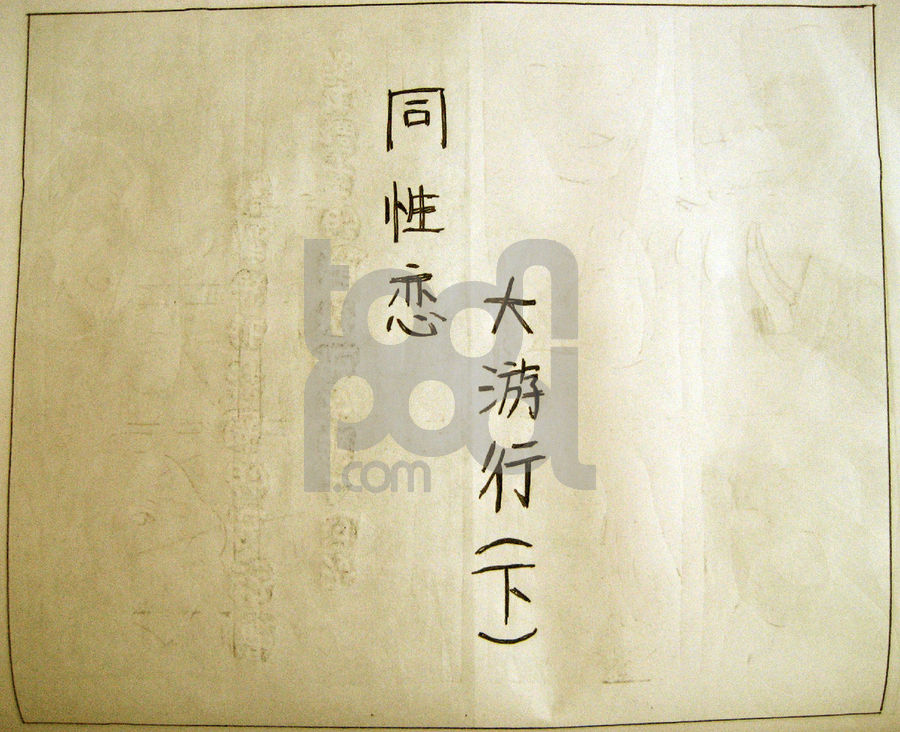 同性恋
大游行(下)
toonpool
.com